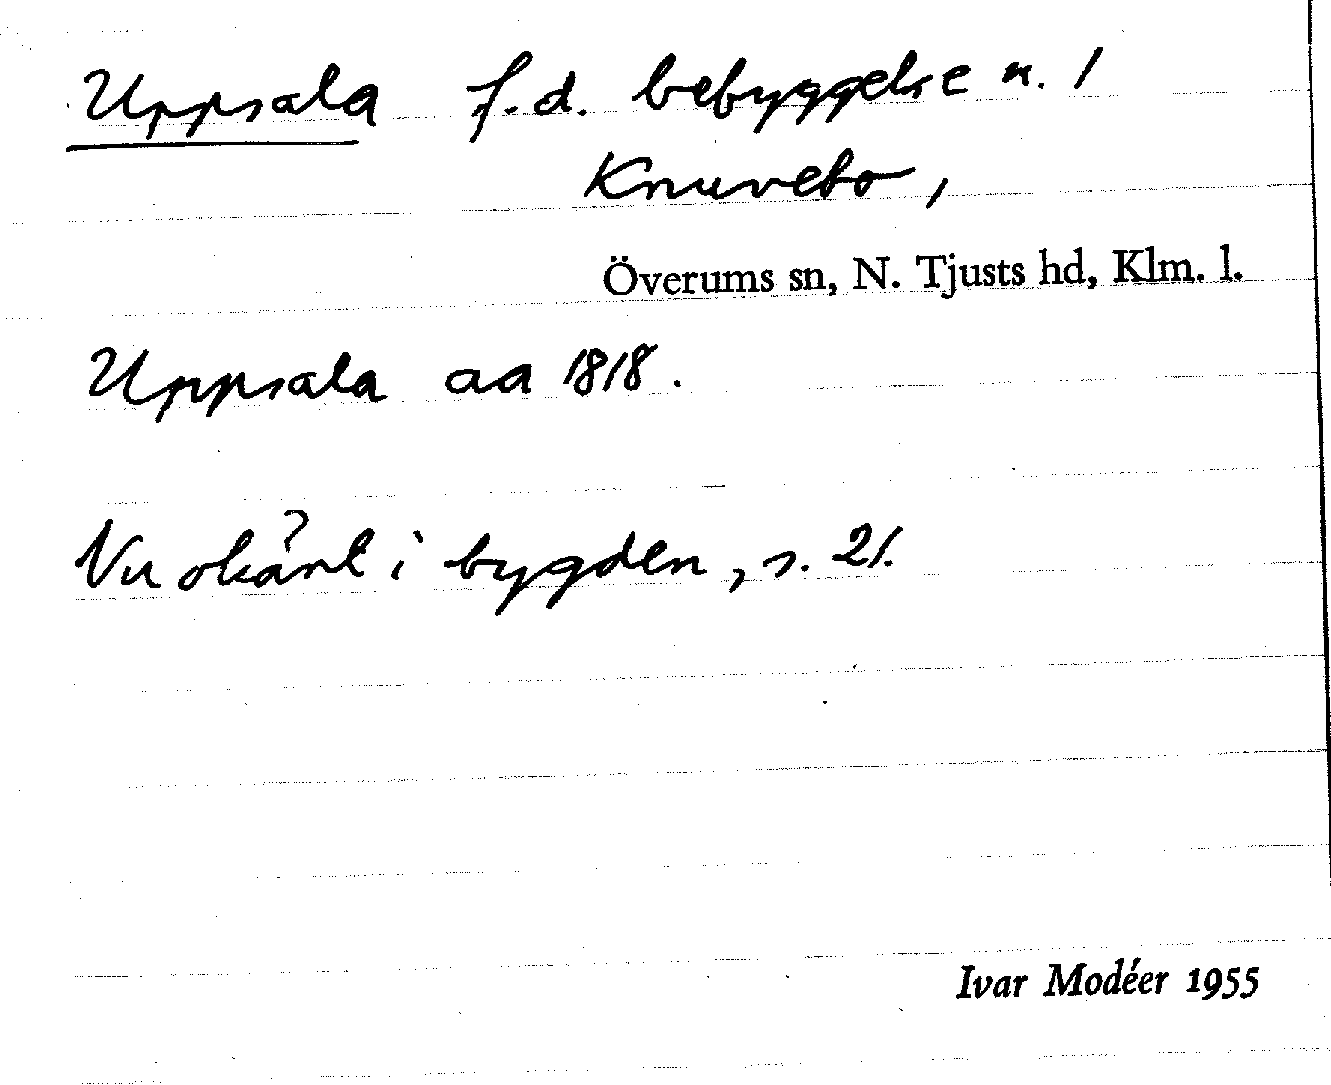 Uppsala f.d. bebyggelse u. 1
Knuvebo,
Överums sn, N. Tjusts hd, Klm. l.
Uppsala aa 1818.
Nu okänt i bygden, s. 21.
Ivar Modéer 1955